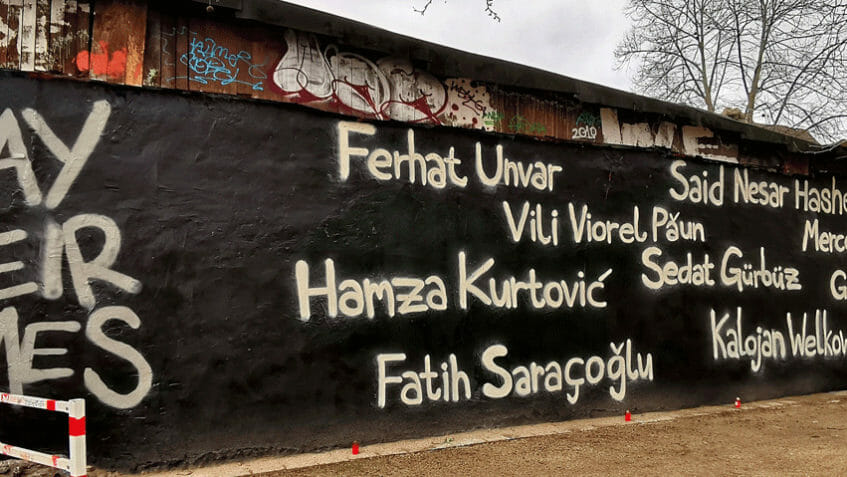 AY
EIR
MES
2010
Ferhat Unvar
Said Nesar Hashe
Vili Viorel Păun
Merce
Sedat Gürbüz
G
Hamza Kurtović
Kalojan Welkow
Fatih Saraçoğlu